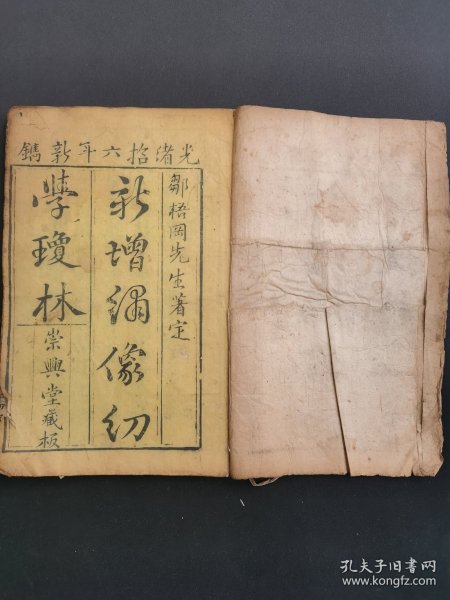 光绪拾六年新鐫
鄒梧岡先生著定
新增绣像幼
學瓊林
崇興堂藏板
孔夫子旧书网
www.kongfz.com